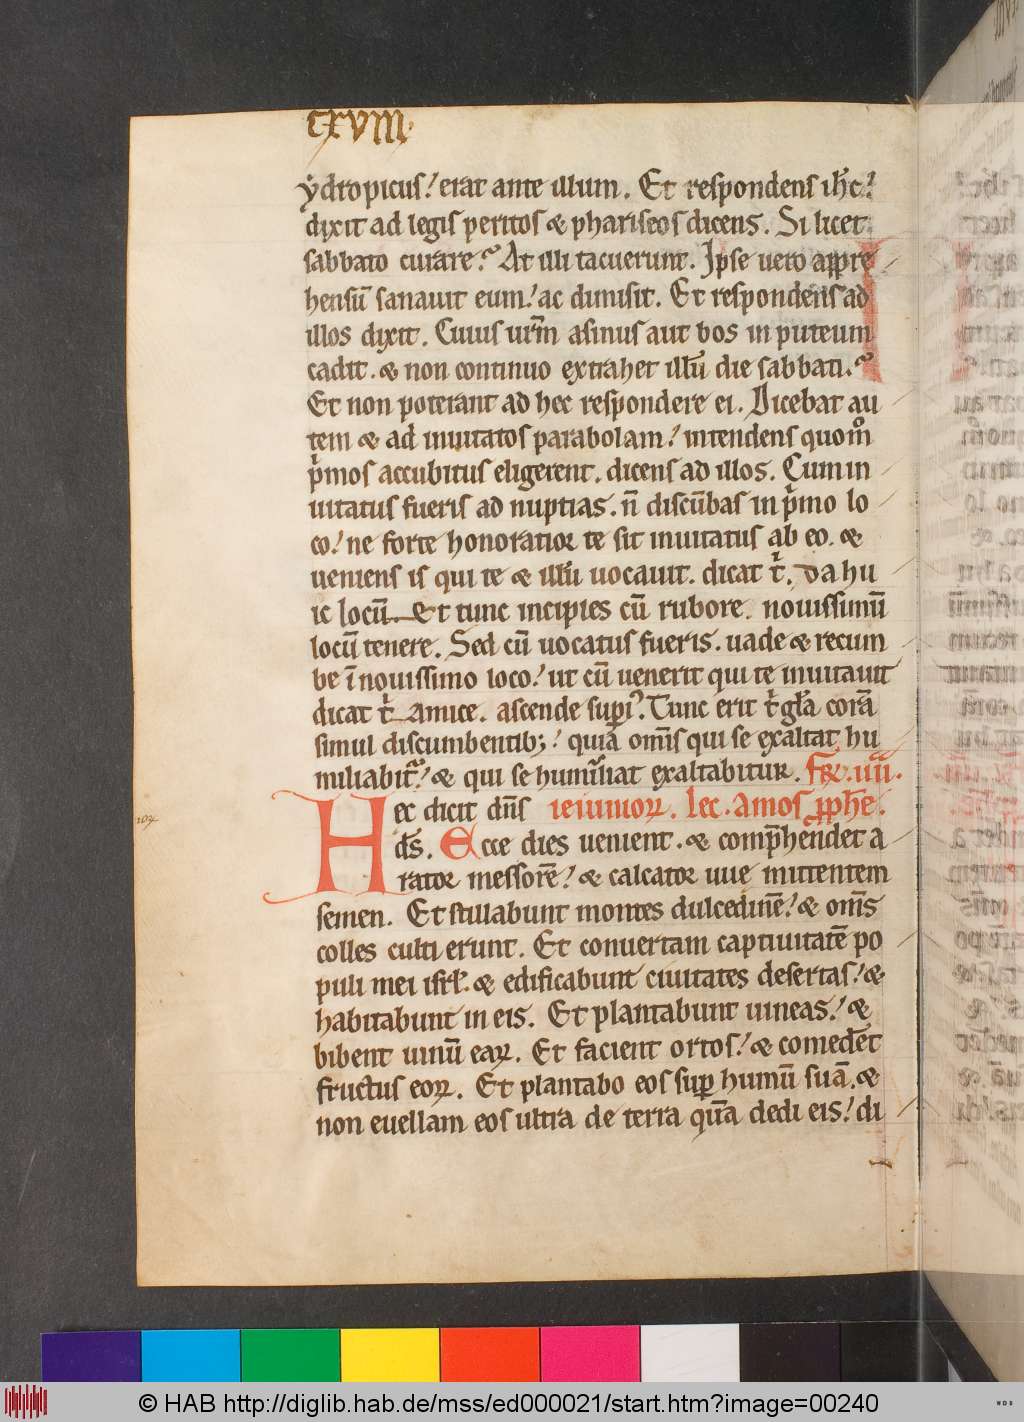 cxviii.
ẏdropicus! erat ante illum. Et respondens ih̄c!
dixit ad legis peritos & phariseos dicens. Si licet
sabbato curare? At illi tacuerunt. Ipse uero appre
hensū sanauit eum! ac dimisit. Et respondens ad
illos dixit. Cuius ur̄m asinus aut bos in puteum
cadit. & non continuo extrahet illū die sabbati.?
Et non poterant ad hec respondere ei. Dicebat au
tem & ad inuitatos parabolam! intendens quom̊
pͥmos accubitus eligerent. dicens ad illos. Cum in
uitatus fueris ad nuptias. n̄ discūbas in pͥmo lo
co! ne forte honoratior te sit inuitatus ab eo. &
ueniens is qui te & illū uocauit. dicat tͥ. Da hu
ic locū. Et tunc incipies cū rubore. nouissimū
locū tenere. Sed cū uocatus fueris. uade & recum
be ī nouissimo loco! ut cū uenerit qui te inuitauit
dicat tͥ Amice. ascende supiꝰ. Tunc erit tͥ gl̄a corā
simul discumbentib;! quia om̄s qui se exaltat hu
miliabit᷑! & qui se humiliat exaltabitur. Fr̄. iiii.
Hec dicit dn̄s ieiuniorꝝ. lec. Amos ꝓph̄e.
ds̄. Ecce dies uenient. & comp̄hendet a
rator messorē! & calcator uue mittentem
semen. Et stillabunt montes dulcedinē! & om̄s
colles culti erunt. Et conuertam captiuitatē po
puli mei isrl̄. & edificabunt ciuitates desertas! &
habitabunt in eis. Et plantabunt uineas! &
bibent uinū eaꝝ. Et facient ortos! & comedēt
fructus eoꝝ. Et plantabo eos sup̄ humū suā. &
non euellam eos ultra de terra quā dedi eis! di
© HAB http://diglib.hab.de/mss/ed000021/start.htm?image=00240